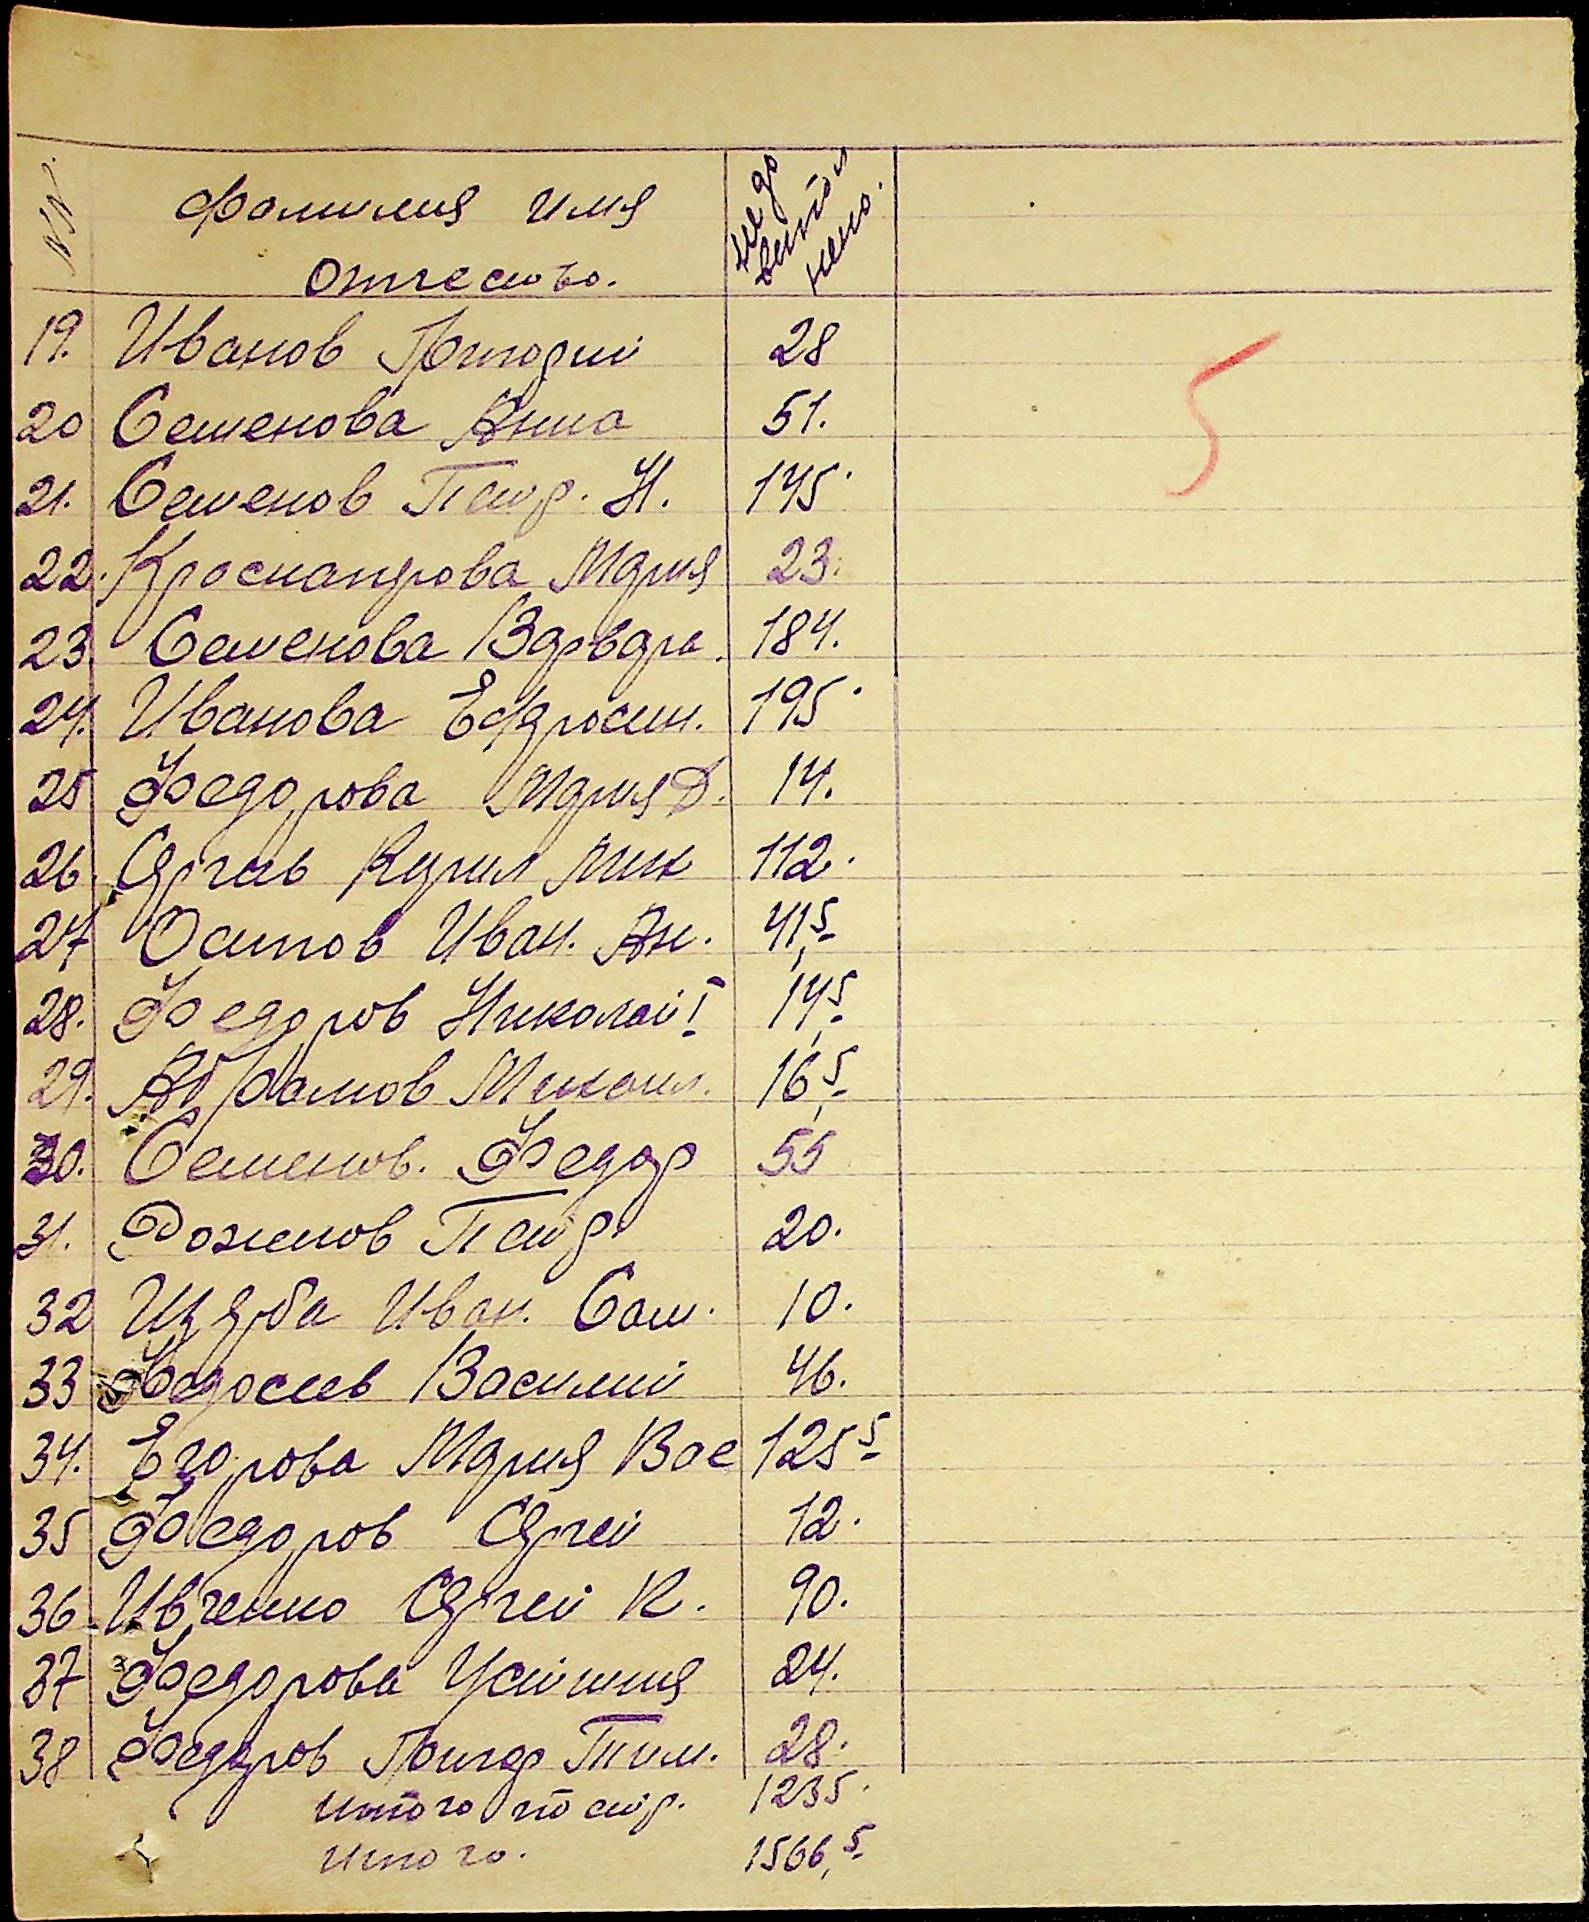 №№ Фамилия имя
Отчество.
не до
выпол
нено.
19. Иванов Григорий 28
20 Семенова Анна 51.
21. Семенов Петр. Н. 145.
22. Краснапрова Мария 23.
23. Семенова Варвара. 184.
24. Иванова Ефросин. 195.
25 Федорова Мария Д. 14.
26. Сергеев Кирил Мих 112.
27 Осипов Иван. Ан. 41,5
28. Федоров Николай I 14,5
29. Абрамов Михаил. 16,5
30. Семенов. Федор 55
31. Роженов Петр. 20.
32 Иван. Сам. 10.
33 Федосеев Василий 46.
34. Егорова Мария Вас 125 5
35 Федоров Сергей 12.
36 Ивченко Сергей К. 90.
37 Федорова Устиния 24.
38 Федоров Григор Тим. 28.
Итого по стр. 1235.
Итого. 1566,5
5